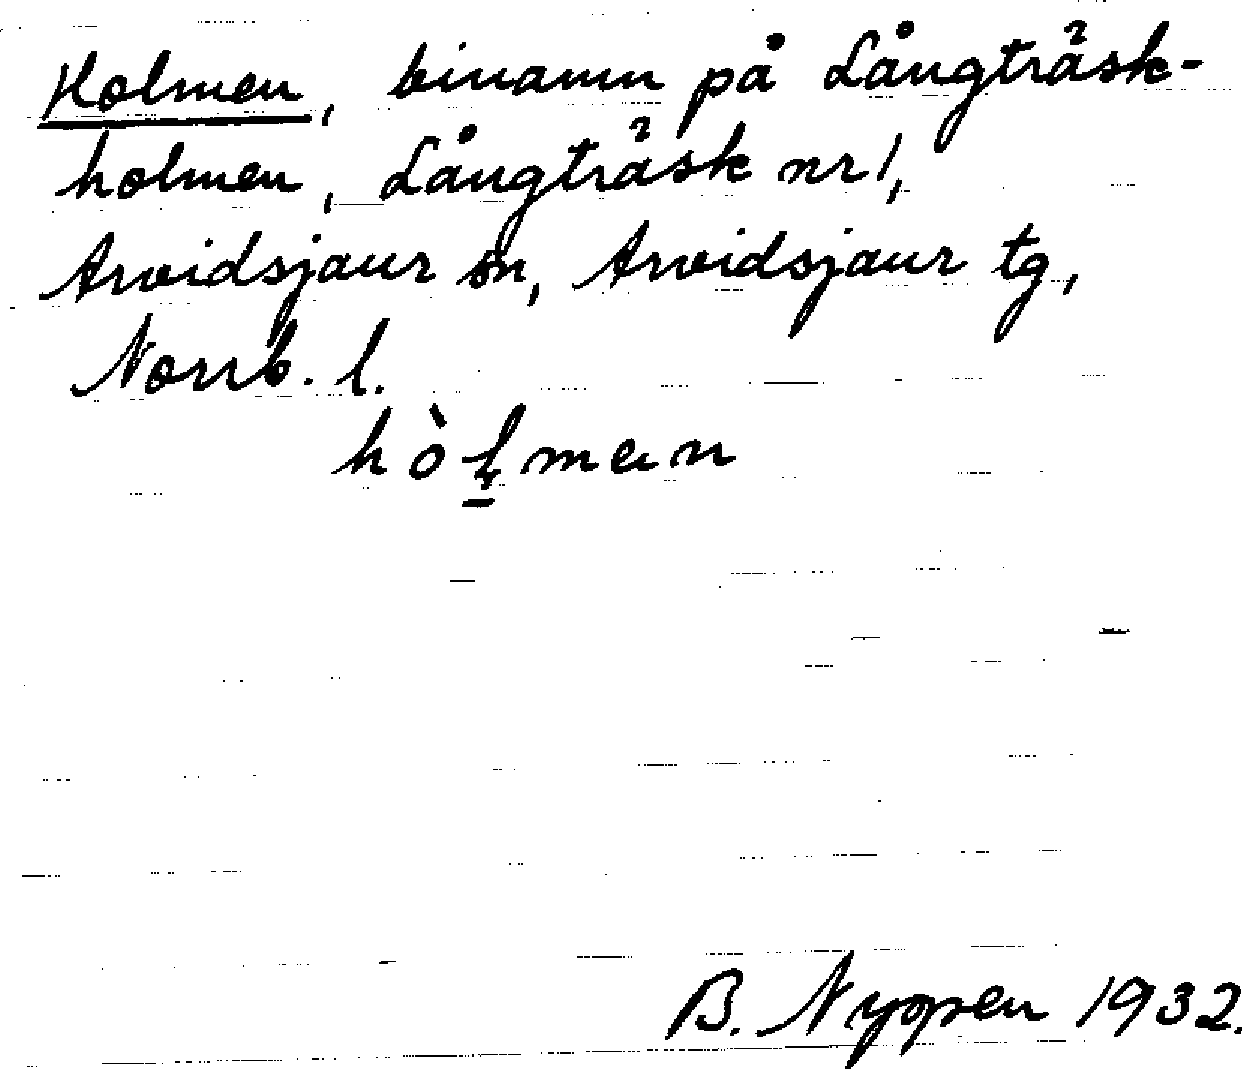 Holmen, binamn på Långträsk-
holmen, Långträsk nr 1,
Arvidsjaur sn, Arvidsjaur tg,
Norrb. l.
B. Nyppen 1932.